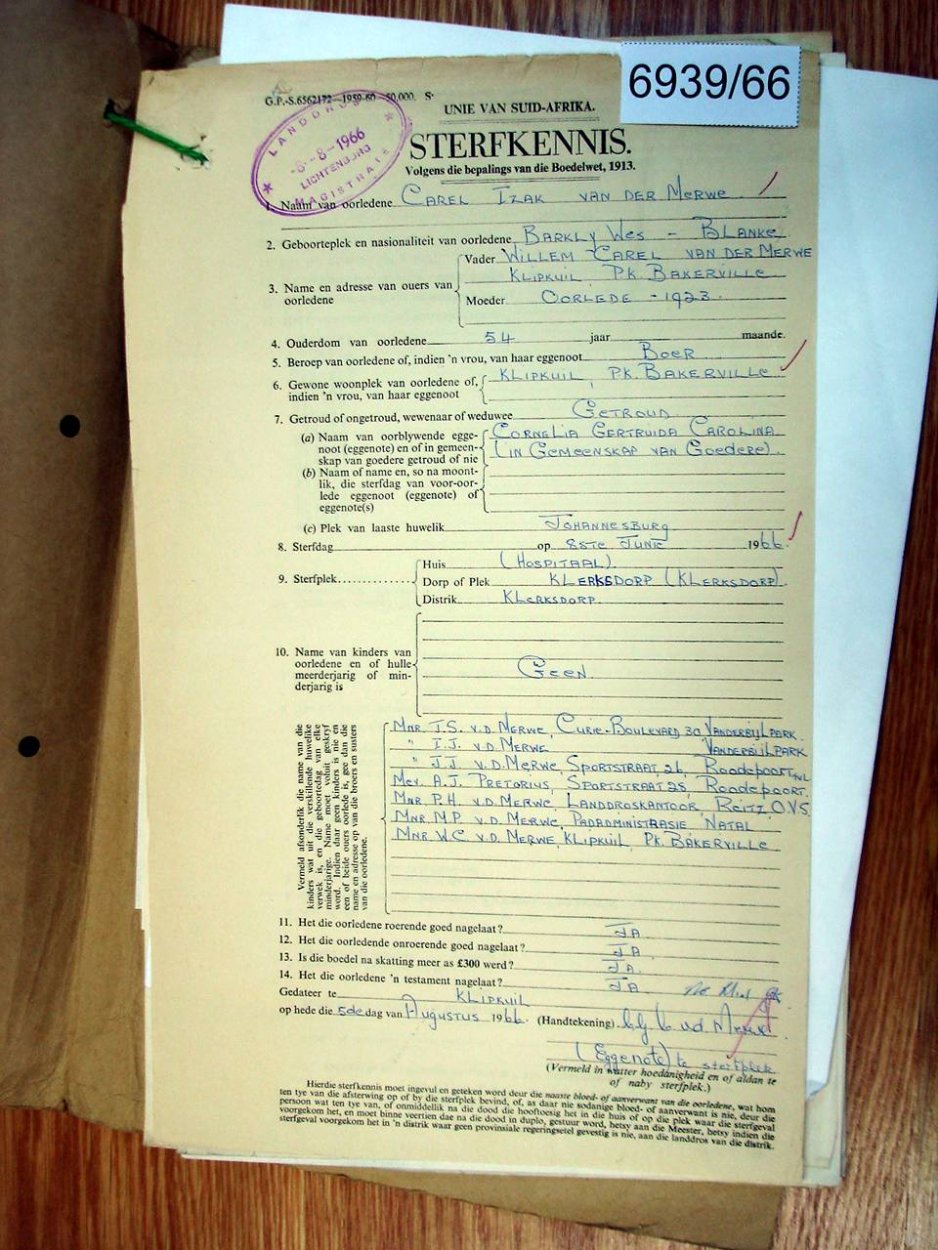 6939/66
G.P.-S.6562172—1959-60—50,000. S.
UNIE VAN SUID-AFRIKA.
STERFKENNIS.
Volgens die bepalings van die Boedelwet, 1913.
LANDDROS
-8-8-1966
LICHTENBURG
MAGISTRATE
1. Naam van oorledene CAREL IZAK VAN DER MERWE
2. Geboorteplek en nasionaliteit van oorledene BARKLY WES - BLANKE
3. Name en adresse van ouers van oorledene
Vader WILLEM CAREL VAN DER MERWE
KLIPKUIL PK. BAKERVILLE
Moeder OORLEDE - 1923.
4. Ouderdom van oorledene 54 jaar maande.
5. Beroep van oorledene of, indien 'n vrou, van haar eggenoot BOER
6. Gewone woonplek van oorledene of, indien 'n vrou, van haar eggenoot
KLIPKUIL, PK. BAKERVILLE
7. Getroud of ongetroud, wewenaar of weduwee GETROUD
(a) Naam van oorblywende eggenoot (eggenote) en of in gemeenskap van goedere getroud of nie
CORNELIA GERTRUIDA CAROLINA
(IN GEMEENSKAP VAN GOEDERE).
(b) Naam of name en, so na moontlik, die sterfdag van voor-oorlede eggenoot (eggenote) of eggenote(s)
(c) Plek van laaste huwelik JOHANNESBURG
8. Sterfdag op 8STE JUNIE 1966.
9. Sterfplek
Huis (HOSPITAAL).
Dorp of Plek KLERKSDORP (KLERKSDORP).
Distrik KLERKSDORP.
10. Name van kinders van oorledene en of hulle meerderjarig of minderjarig is
GEEN
Vermeld afsonderlik die name van die kinders wat uit die verskillende huwelike verwek is, en die geboortedag van elke minderjarige. Name moet voluit geskryf word. Indien daar geen kinders is nie en een of beide ouers oorlede is, gee dan die name en adresse op van die broers en susters van die oorledene.
MNR J.S. V.D. MERWE, CURIE-BOULEVARD 30 VANDERBIJLPARK.
" I.J. V.D. MERWE VANDERBIJLPARK
" J.J. V.D. MERWE, SPORTSTRAAT, 26, ROODEPOORT,
MEV. A.J. PRETORIUS, SPORTSTRAAT 28, ROODEPOORT.
MNR P.H. V.D. MERWE, LANDDROSKANTOOR, REITZ O.V.S.
MNR M.P. V.D. MERWE, PADADMINISTRASIE NATAL
MNR W.C V.D. MERWE, KLIPKUIL, PK. BAKERVILLE
11. Het die oorledene roerende goed nagelaat? JA
12. Het die oorledende onroerende goed nagelaat? JA
13. Is die boedel na skatting meer as £300 werd? JA.
14. Het die oorledene 'n testament nagelaat? JA
Gedateer te KLIPKUIL
op hede die 5de dag van Augustus 1966. (Handtekening) v.d. Merwe
(Eggenote) te sterfplek
(Vermeld in watter hoedanigheid en of aldan te of naby sterfplek.)
Hierdie sterfkennis moet ingevul en geteken word deur die naaste bloed- of aanverwant van die oorledene, wat hom
ten tye van die afsterwing op of by die sterfplek bevind, of, as daar nie sodanige bloed- of aanverwant is nie, deur die
persoon wat ten tye van, of onmiddellik na die dood die hooftoesig het in die huis of op die plek waar die sterfgeval
voorgekom het, en moet binne veertien dae na die dood in duplo, gestuur word, hetsy aan die Meester, hetsy indien die
sterfgeval voorgekom het in 'n distrik waar geen provinsiale regeringsetel gevestig is nie, aan die landdros van die distrik.